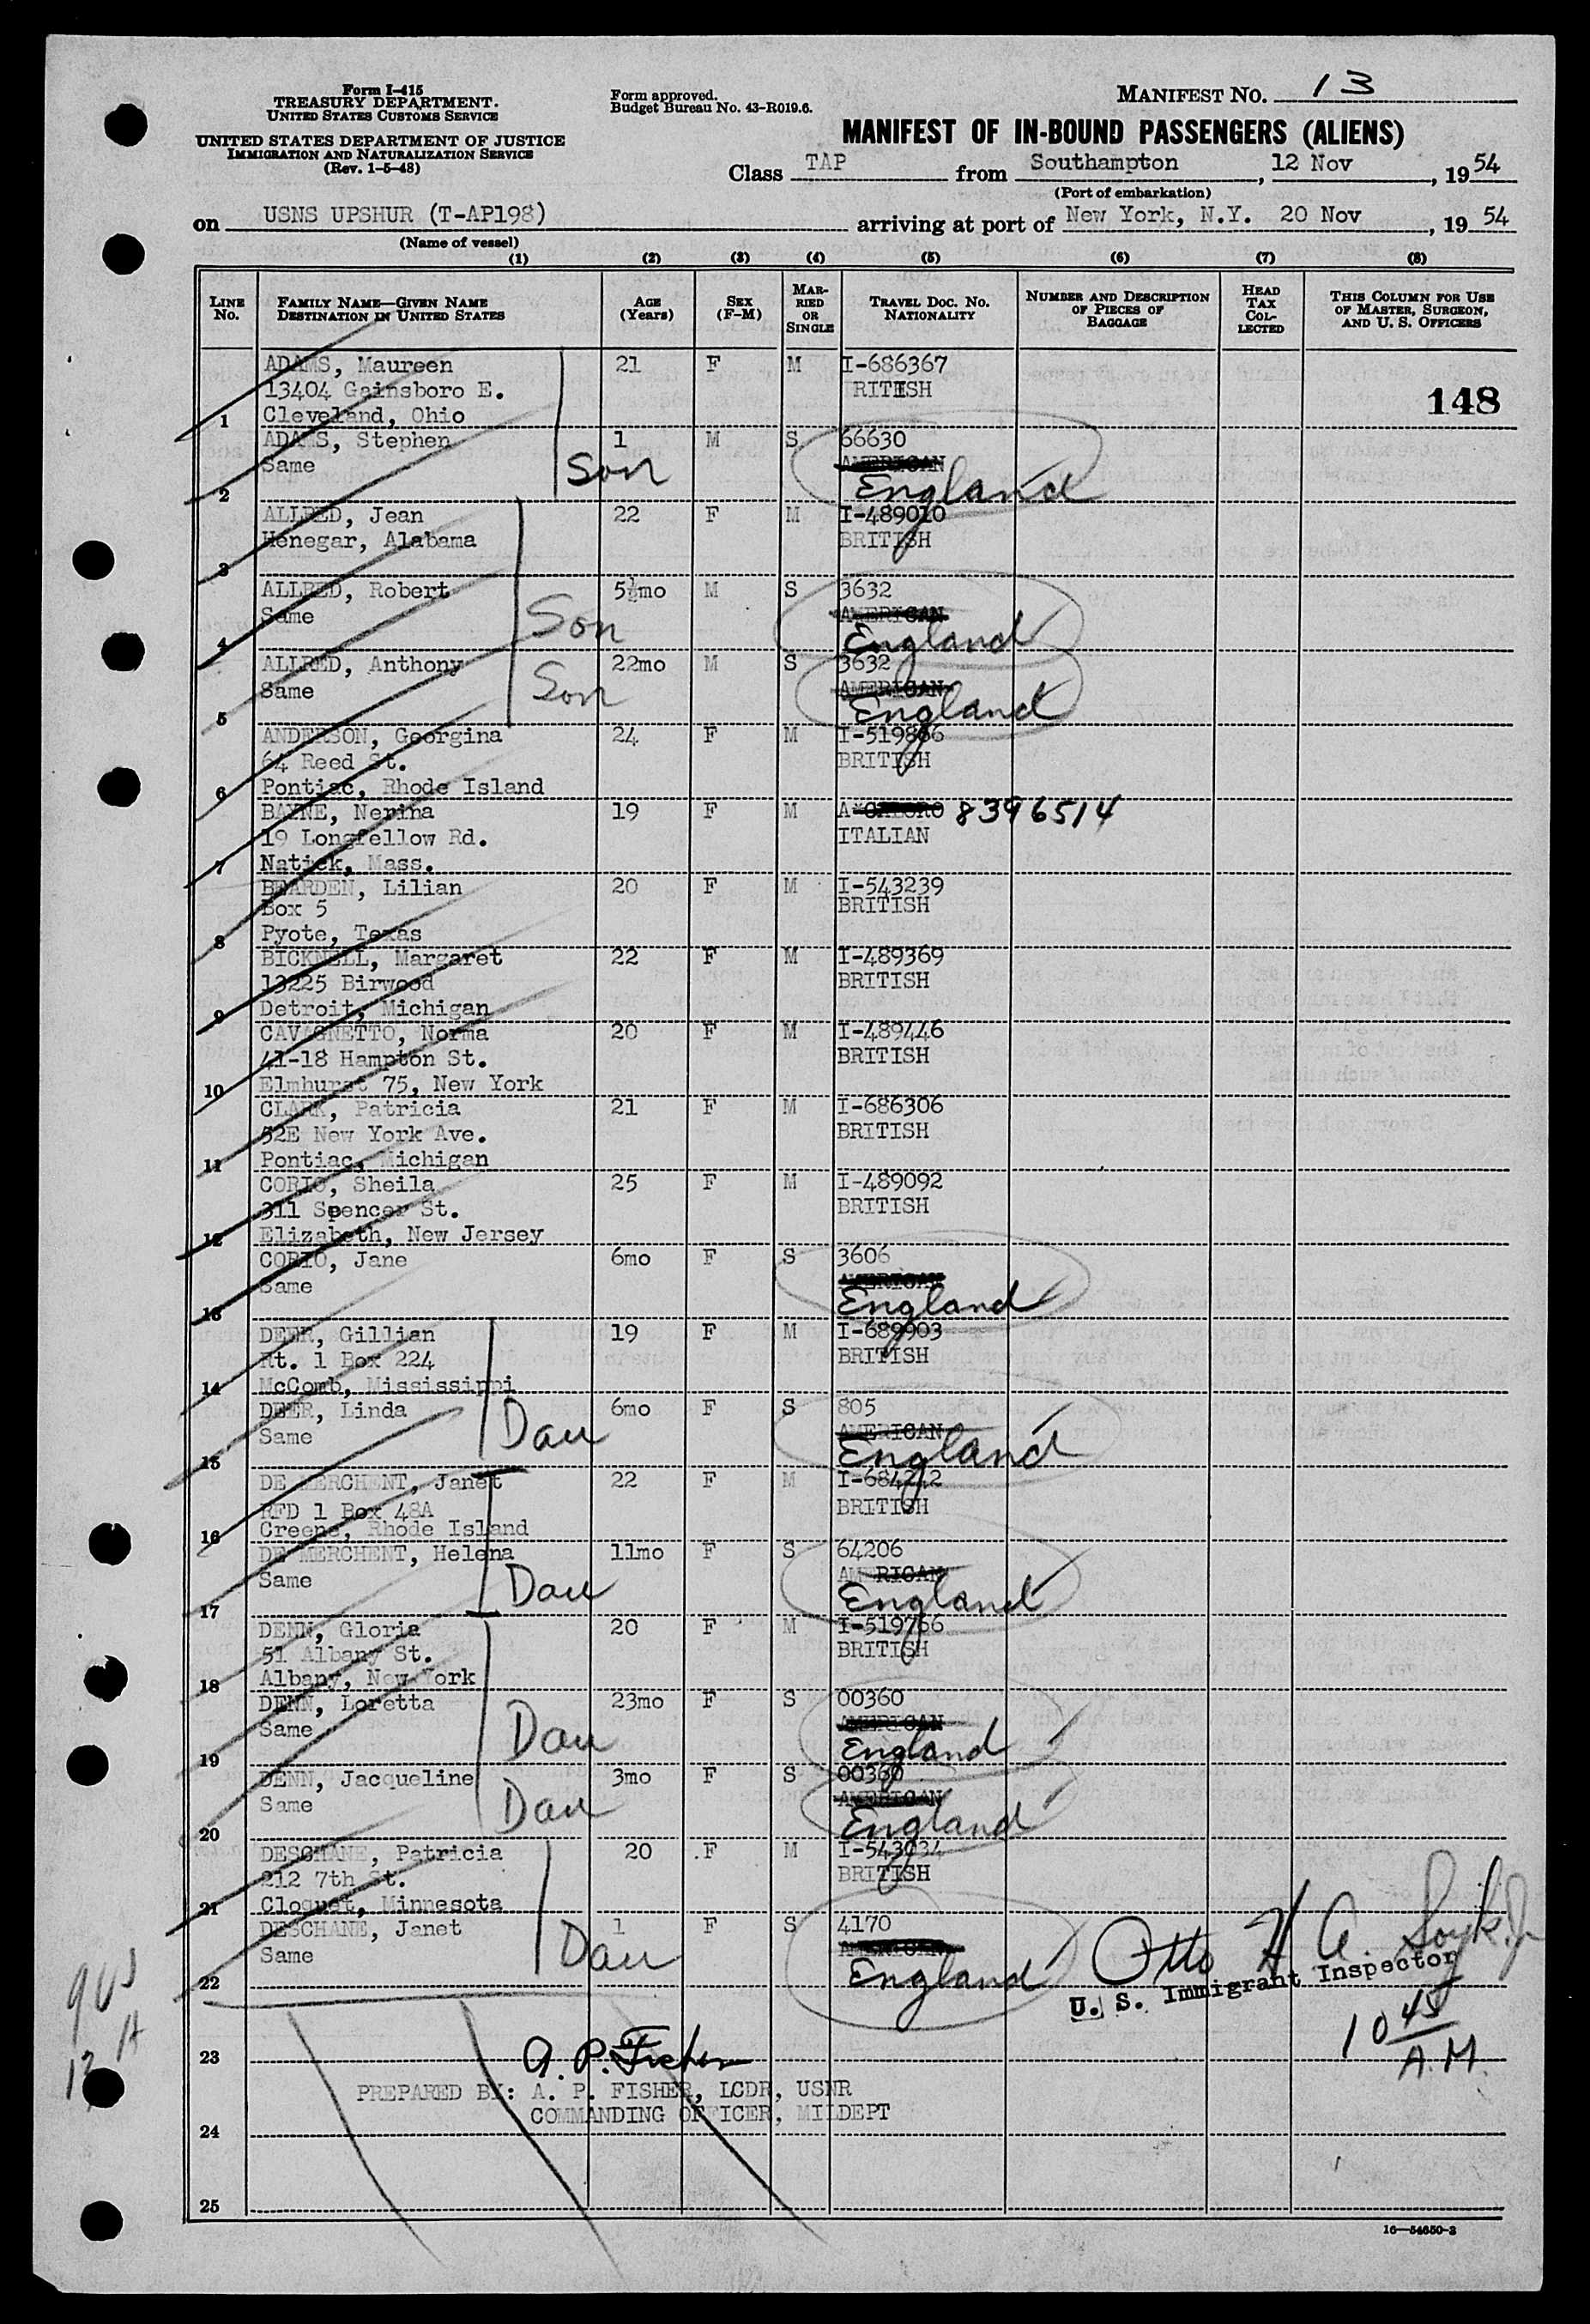 Form I-415
TREASURY DEPARTMENT.
UNITED STATES CUSTOMS SERVICE
UNITED STATES DEPARTMENT OF JUSTICE
IMMIGRATION AND NATURALIZATION SERVICE
(Rev. 1-5-48)
Form approved.
Budget Bureau No. 43-R019.6.
MANIFEST NO. 13
MANIFEST OF IN-BOUND PASSENGERS (ALIENS)
Class TAP from Southampton, 12 Nov, 1954
(Port of embarkation)
on USNS UPSHUR (T-AP198) arriving at port of New York, N.Y. 20 Nov, 1954
(Name of vessel)
(1) (2) (3) (4) (5) (6) (7) (8)
LINE No. FAMILY NAME—GIVEN NAME DESTINATION IN UNITED STATES AGE (Years) SEX (F-M) MARRIED OR SINGLE TRAVEL DOC. No. NATIONALITY NUMBER AND DESCRIPTION OF PIECES OF BAGGAGE HEAD TAX COLLECTED THIS COLUMN FOR USE OF MASTER, SURGEON, AND U. S. OFFICERS
ADAMS, Maureen 21 F M I-686367
13404 Gainsboro E. RITISH
148
1 Cleveland, Ohio
ADAMS, Stephen 1 M S 66630
Same Son AMERICAN
2 England
ALLRED, Jean 22 F M I-489010
Henegar, Alabama BRITISH
3
ALLRED, Robert 5½mo M S 3632
Same Son AMERICAN
4 England
ALLRED, Anthony 22mo M S 3632
Same Son AMERICAN
5 England
ANDERSON, Georgina 24 F M I-519866
64 Reed St. BRITISH
6 Pontiac, Rhode Island
BAYNE, Nerina 19 F M A 8396514
19 Longfellow Rd. ITALIAN
7 Natick, Mass.
BEARDEN, Lilian 20 F M I-543239
Box 5 BRITISH
8 Pyote, Texas
BICKNELL, Margaret 22 F M I-489369
13225 Birwood BRITISH
9 Detroit, Michigan
CAVAGNETTO, Norma 20 F M I-489446
41-18 Hampton St. BRITISH
10 Elmhurst 75, New York
CLARK, Patricia 21 F M I-686306
52E New York Ave. BRITISH
11 Pontiac, Michigan
CORIO, Sheila 25 F M I-489092
311 Spencer St. BRITISH
12 Elizabeth, New Jersey
CORIO, Jane 6mo F S 3606
Same AMERICAN
13 England
DEER, Gillian 19 F M I-689903
Rt. 1 Box 224 BRITISH
14 McComb, Mississippi
DEER, Linda 6mo F S 805
Same Dau AMERICAN
15 England
DE MERCHENT, Janet 22 F M I-684242
RFD 1 Box 48A BRITISH
16 Creene, Rhode Island
DE MERCHENT, Helena 11mo F S 64206
Same Dau AMERICAN
17 England
DENN, Gloria 20 F M I-519766
51 Albany St. BRITISH
18 Albany, New York
DENN, Loretta 23mo F S 00360
Same Dau AMERICAN
19 England
DENN, Jacqueline 3mo F S 00360
Same Dau AMERICAN
20 England
DESCHANE, Patricia 20 F M I-543034
212 7th St. BRITISH
21 Cloquet, Minnesota
DESCHANE, Janet 1 F S 4170
Same Dau AMERICAN
22 England
Otto H A.
U. S. Immigrant Inspector
10 45
A.M.
23 A. P. Fisher
PREPARED BY: A. P. FISHER, LCDR, USNR
COMMANDING OFFICER, MILDEPT
24
25
16—54650-2